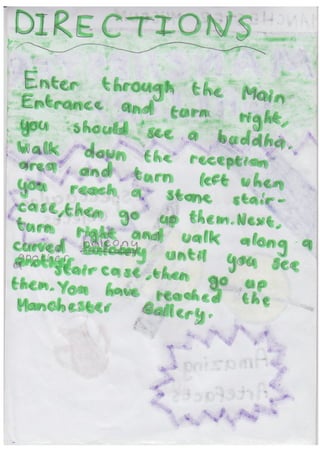 DIRECTIONS
Enter through the Main
Entrance and turn right,
you should see a buddha.
Walk down the reception
area and turn left when
you reach a stone stair-
case, then go up them. Next,
turn right and walk along a
curved balcony until you see
another
staircase, then go up
them. You have reached the
Manchester Gallery.
Amazing
Artefacts